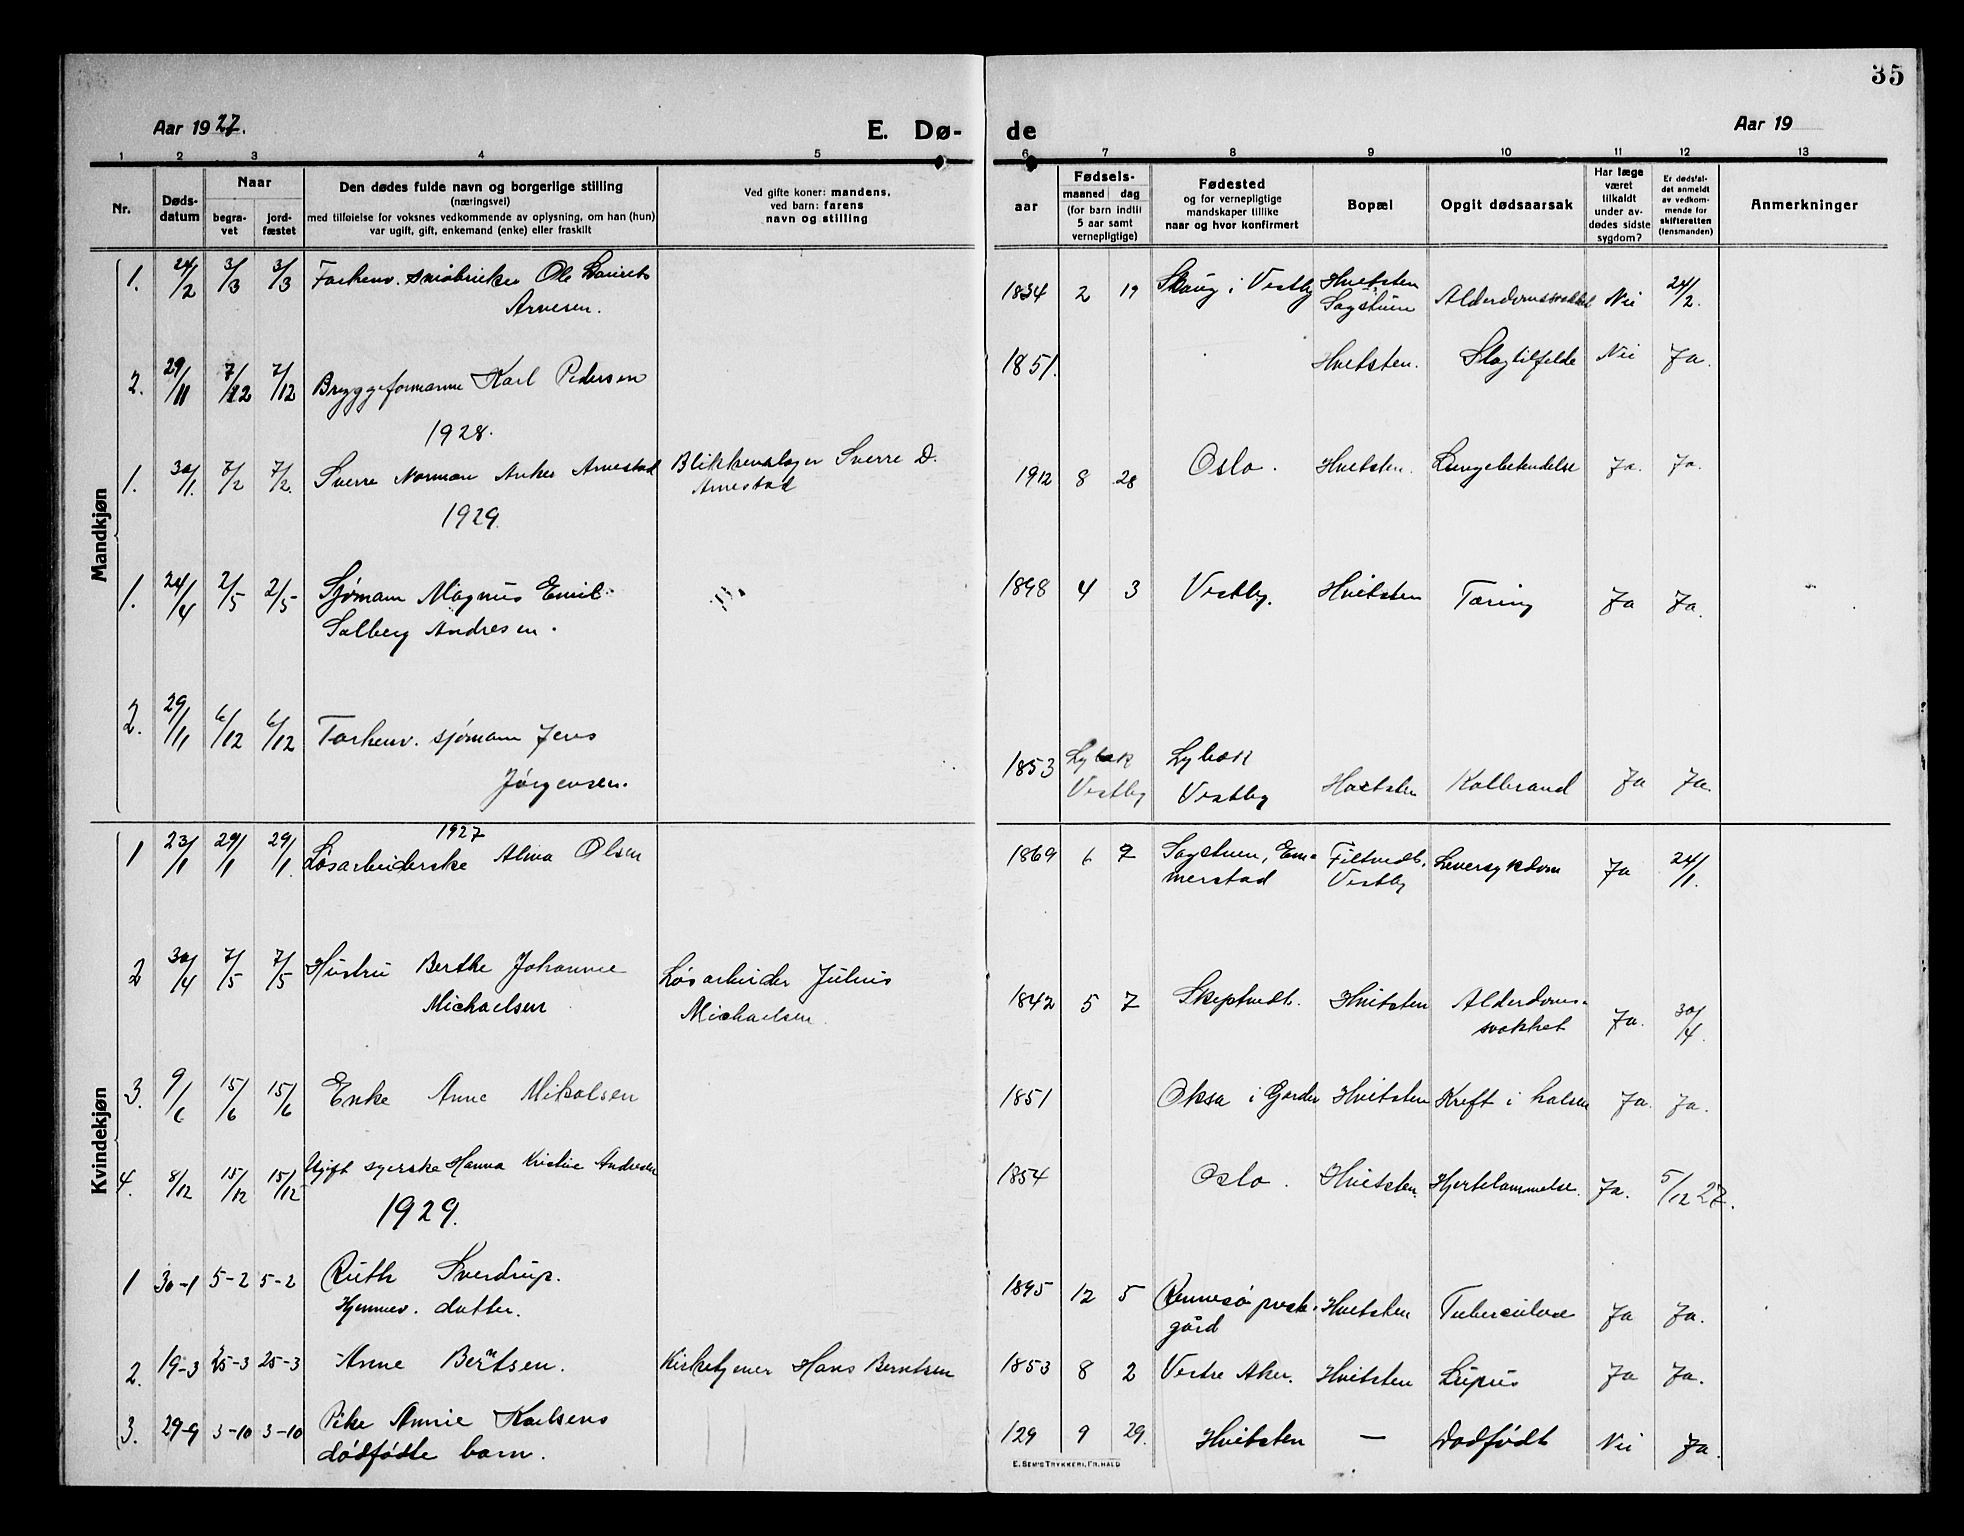 35
Aar 1927.
E. Dø-
de
Aar 19
1 2 3 4 5 6 7 8 9 10 11 12 13
Nr.
Døds-
datum
Naar
begra-
vet
jord-
fæstet
Den dødes fulde navn og borgerlige stilling
(næringsvei)
med tilføielse for voksnes vedkommende av oplysning, om han (hun)
var ugift, gift, enkemand (enke) eller fraskilt
Ved gifte koner: mandens,
ved barn: farens
navn og stilling
Fødsels-
aar
maaned dag
(for barn indtil
5 aar samt
vernepligtige)
Fødested
og for vernepligtige
mandskaper tillike
naar og hvor konfirmert
Bopæl
Opgit dødsaarsak
Har læge
været
tilkaldt
under av-
dødes sidste
sygdom?
Er dødsfal-
det anmeldt
av vedkom-
mende for
skifteretten
(lensmanden)
Anmerkninger
Mandkjøn
1. 24/2 3/3 3/3 Forhenv. Ole
Arvesen.
1834 2 19 Skaug i Vestby Hvitsten Alderdomssvakhet Nei 24/2.
Sagstuen
2. 29/11 7/12 7/12 Bryggeformann Karl Pedersen
1851. Hvitsten. Slagtilfelde Nei Ja.
1928.
1. 30/1. 7/2 7/2. Sverre Norman Anker Arnestad Blikkenslager Sverre D.
Arnestad
1912 8 28 Oslo. Hvitsten. Lungebetendelse Ja. Ja.
1929.
1. 24/4 2/5 2/5 Sjømann Magnus Emil
Solberg Andresen.
1898 4 3 Vestby. Hvitsten Tæring Ja Ja.
2. 29/11 6/12 6/12 Forhenv. sjømann Jens
Jørgensen.
1853 Lybæk Lybæk
Vestby Vestby Hvitsten Kolbrand Ja Ja.
Kvindekjøn
1927
1 23/1 29/1 29/1. Løsarbeiderske Alma Olsen
1869 6 9 Sagstuen, Em- Filtvedt, Leversykdom Ja 24/1.
merstad Vestby
2 30/4 7/5 7/5 Hustru Berthe Johanne Løsarbeider Julius
Michaelsen Michaelsen.
1842 5 7 Skeptvedt. Hvitsten Alderdoms- Ja. 30/4.
svakhet
3. 9/6 15/6 15/6 Enke Anne Mikalsen
1851 Oksa i Gjerder Hvitsten Kreft i halsen Ja. Ja.
4. 8/12 15/12 15/12 Ugift syerske Hanna Kristine Andresen
1854 Oslo. Hvitsten. Hjertelammelse. Ja. 5/12 27.
1929.
1 30-1 5-2 5-2 Ruth Sverdrup.
Hjemmev. datter.
1895 12 5 Rennesø prest- Hvitsten Tuberculose Ja Ja.
gård
2. 19-3 25-3 25-3 Anne Berntsen. Kirketjener Hans Berntsen
1853 8 2 Vestre Aker. Hvitsten Lupus Ja Ja.
3. 29-9 3-10 3-10 Pike Annie Karlsens
dødfødte barn.
129 9 29. Hvitsten — Dødfødt Nei Ja
E. SEM'S TRYKKERI, FR.HALD